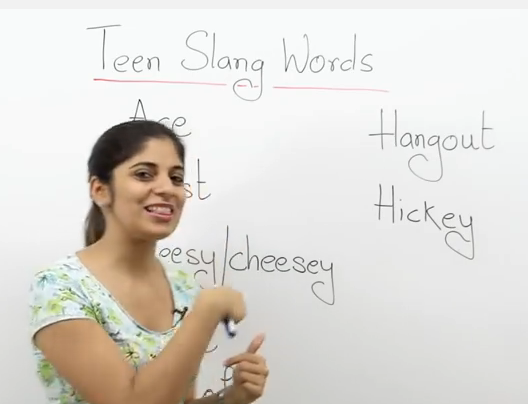 Teen Slang Words
Ace
eesy/cheesey
Hangout
Hickey